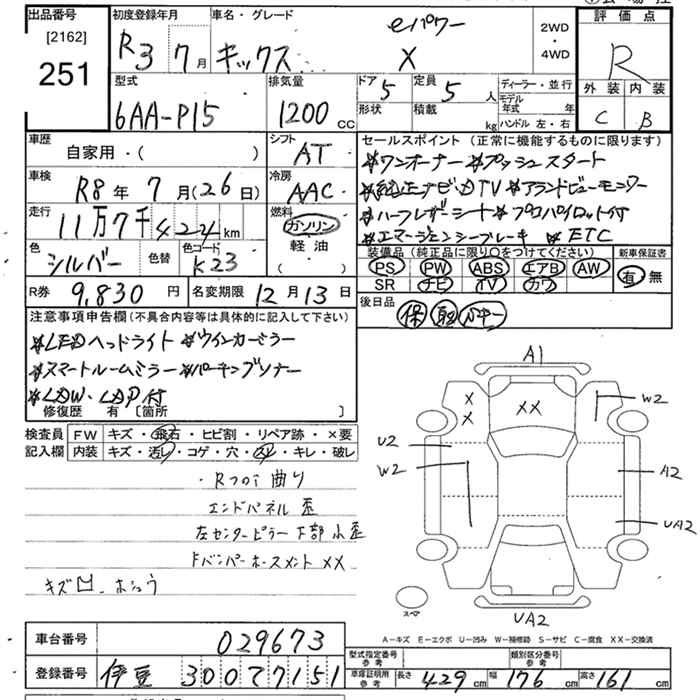 出品番号 初度登録年月 車名・グレード 評価点
[2162] R3 7月 キックス eパワー X 2WD・4WD R
251 外装 内装
C B
型式 排気量 ドア 5 定員 5人 ディーラー・並行
6AA-P15 1200 CC 形状 積載 kg モデル年式 年
ハンドル 左・右
車歴 自家用・( ) シフト AT セールスポイント(正常に機能するものに限ります)
*ワンオーナー *プッシュスタート
車検 R8年7月(26日) 冷房 AAC *純正ナビ.DTV *アラウンドビューモニター
走行 11万7千424km 燃料 ガソリン *ハーフレザーシート *プロパイロット付
軽油 *エマージェンシーブレーキ *ETC
色 シルバー 色替 色コード K23 ・( ) 装備品(純正品に限り○をつけてください) 新車保証書
PS PW ABS エアB AW 有 無
R券 9,830円 名変期限 12月13日 SR ナビ TV カワ
後日品 保 取
注意事項申告欄(不具合内容等は具体的に記入して下さい)
*LEDヘッドライト *ウインカーミラー
*スマートルームミラー *パーキングソナー
*LDW・LDP付
修復歴 有 [箇所 ]
検査員記入欄 FW キズ・飛石・ヒビ割・リペア跡・×要
内装 キズ・汚レ・コゲ・穴・スレ・キレ・破レ
・Rつのイ曲り
エンドパネル歪
左センターピラー下部小歪
Fバンパーホースメント XX
キズ凹 ホショウ
A1
X
X
XX
W2
U2
W2
A2
UA2
スペア
UA2
A-キズ E-エクボ U-凹み W-補修跡 S-サビ C-腐食 XX-交換済
車台番号 029673
登録番号 伊豆 300 て 7151
型式指定番号 参考 類別区分番号 参考
車庫証明用 参考 長さ 429cm 幅 176cm 高さ 161cm